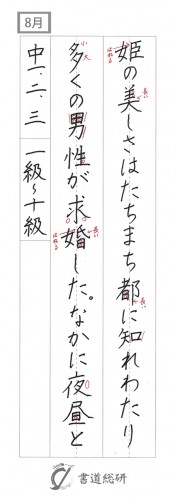 8月
姫の美しさはたちまち都に知れわたり
多くの男性が求婚した。なかに夜昼と
中一、二、三 一級〜十級
書道総研